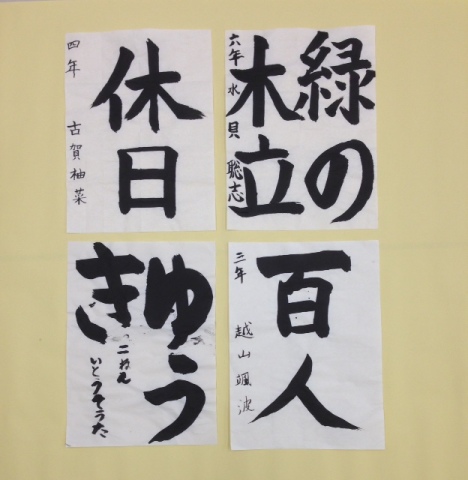 緑の
木立
六年 水貝 聡志
休日
四年 古賀柚菜
百人
三年 越山颯波
ゆう
き
二ねん
いとうそうた